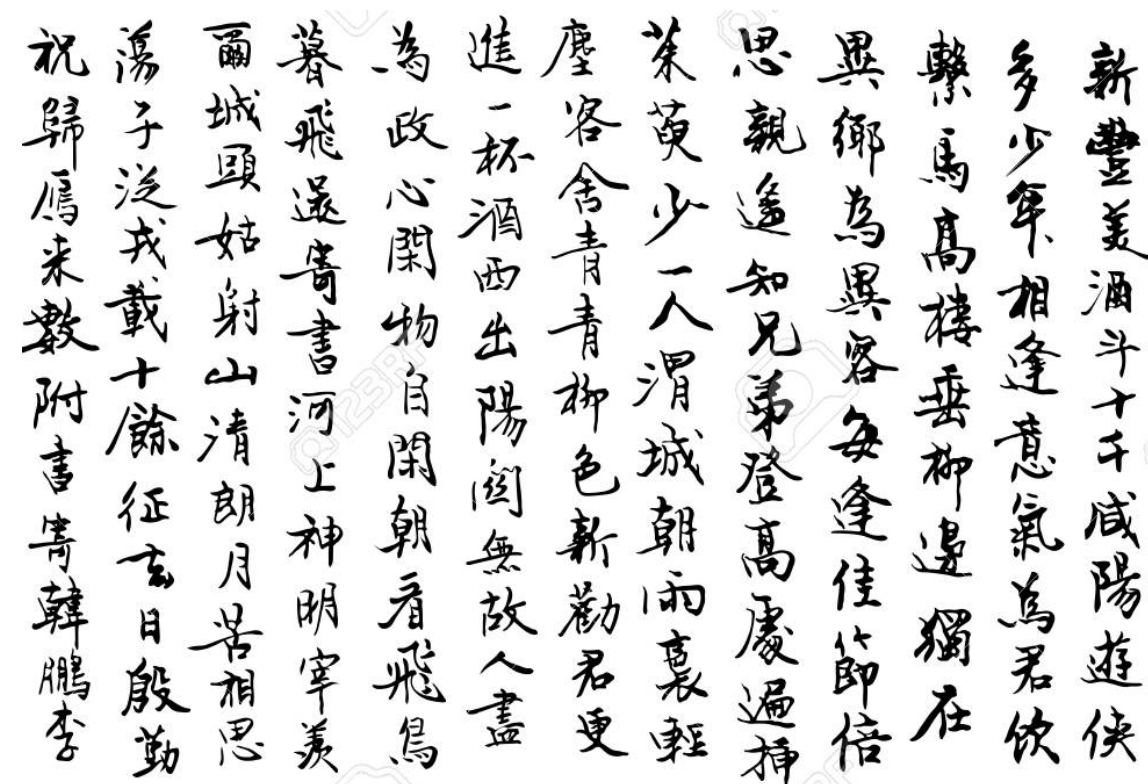 新豐美酒斗十千咸陽遊俠
多少年相逢意氣為君饮
繫馬高樓垂柳邊獨在
異鄉為異客每逢佳節倍
思親遙知兄弟登高處遍插
茱萸少一人渭城朝雨裛輕
塵客舍青青柳色新勸君更
進一杯酒西出陽關無故人盡
為政心閑物自閑朝看飛鳥
暮飛還寄書河上神明宰羨
爾城頭姑射山清朗月苦相思
蕩子泛戎載十餘征玄日殷勤
祝歸鴈来數附書寄韓鵬李